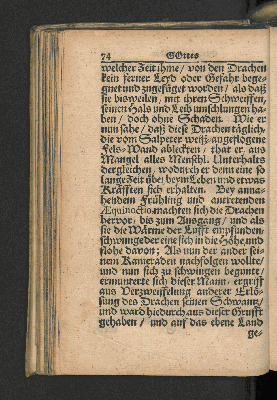 74 GOttes
welcher Zeit ihme / von den Drachen
kein ferner Leyd oder Gefahr bege-
gnet und zugefüget worden / als daß
sie bisweilen / mit ihren Schweiffen /
seinen Hals und Leib umschlungen ha-
ben / doch ohne Schaden. Wie er
nun sahe / daß diese Drachen täglich /
die vom Salpeter weiß-angeflogene
Fels-Wand ableckten / that er aus
Mangel alles Menschl. Unterhalts
dergleichen / wodurch er denn eine so
lange Zeit über beym Leben und etwas
Kräfften sich erhalten. Bey anna-
hendem Frühling und antretenden
Æquinoctio machten sich die Drachen
hervor / bis zum Ausgang / und als
sie die Wärme der Lufft empfunden /
schwung der eine sich in die Höhe und
flohe davon; Als nun der ander sei-
nem Kameraden nachfolgen wollte /
und nun sich zu schwingen begunte /
ermunterte sich dieser Mann / ergriff
aus Verzweiffelung anderer Erlö-
sung des Drachen seinen Schwanz /
und ward hiedurch aus dieser Grufft
gehaben / und auf das ebene Land
ge-